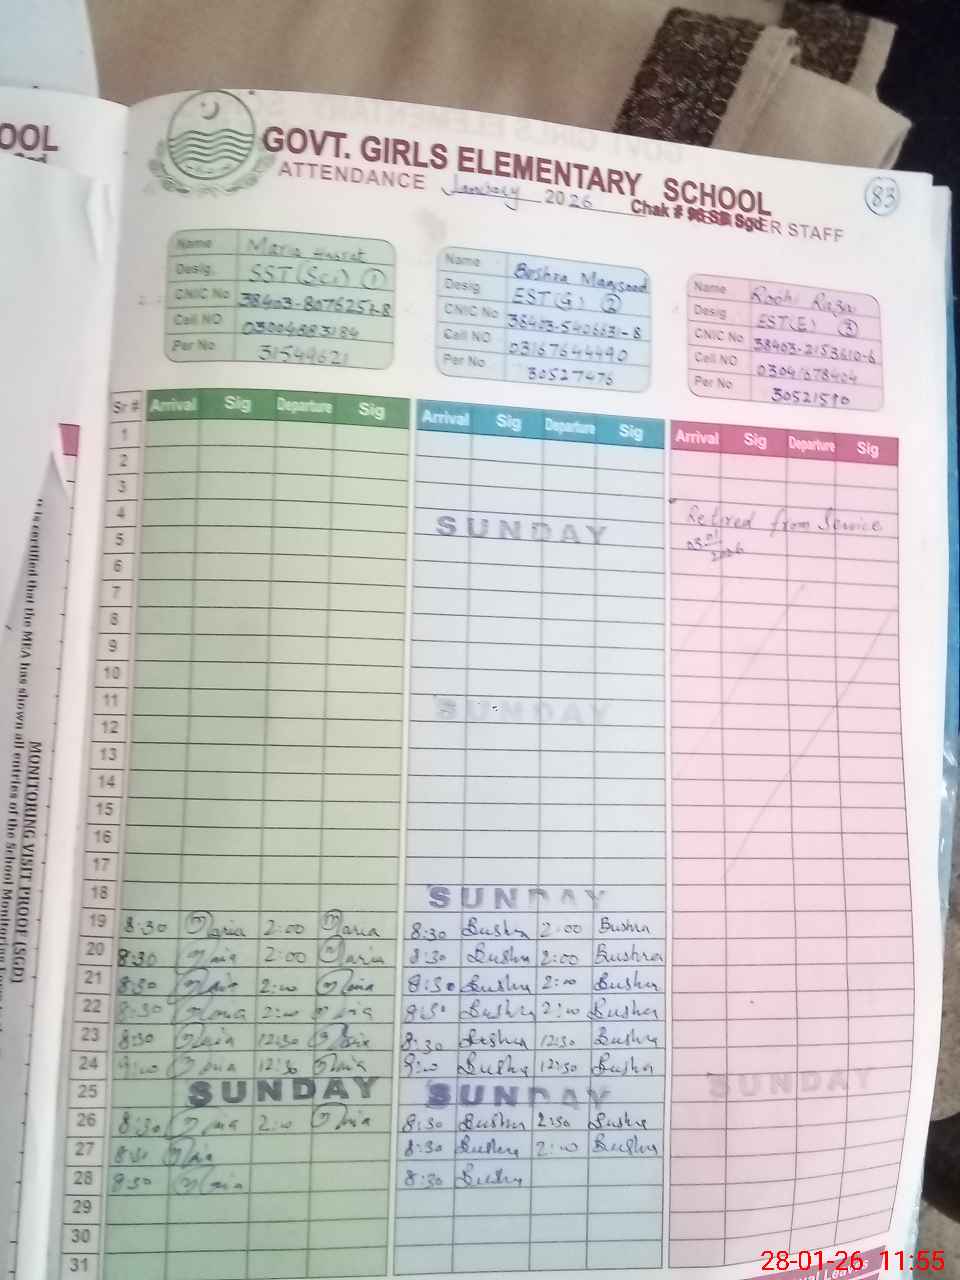 GOVT. GIRLS ELEMENTARY SCHOOL
ATTENDANCE January 2026 Chak # Sgd ER STAFF
83
OOL
Sgd
Name Maria
Desig. SST (Sci) 1
CNIC No 38403-8076251-8
Cell NO 03004883184
Per No 31549621
Name Bushra Maqsood
Desig EST(G) 2
CNIC No 38403-5406631-8
Cell NO 03167644490
Per No 30527476
Name Roohi Raza
Desig EST(E) 3
CNIC No 38403-2153610-6
Cell NO 03041078404
Per No 30521590
Sr # Arrival Sig Departure Sig Arrival Sig Departure Sig Arrival Sig Departure Sig
1
2
3
4 SUNDAY Retired from Service
5 03-01-2026
6
7
8
9
10
11 SUNDAY
12
13
14
15
16
17
18 SUNDAY
19 8:30 Maria 2:00 Maria 8:30 Bushra 2:00 Bushra
20 8:30 Maria 2:00 Maria 8:30 Bushra 2:00 Bushra
21 8:30 Maria 2:00 Maria 8:30 Bushra 2:00 Bushra
22 8:30 Maria 2:00 Maria 8:30 Bushra 2:00 Bushra
23 8:30 Maria 12:30 Maria 8:30 Bushra 12:30 Bushra
24 9:00 Maria 12:30 Maria 9:00 Bushra 12:30 Bushra
25 SUNDAY SUNDAY SUNDAY
26 8:30 Maria 2:00 Maria 8:30 Bushra 2:30 Bushra
27 8:30 Maria 8:30 Bushra 2:00 Bushra
28 8:30 Maria 8:30 Bushra
29
30
31
MONITORING VISIT PROOF (SGD)
It is certified that the MEA has shown all entries of the School Monitoring
Leaves
28-01-26 11:55